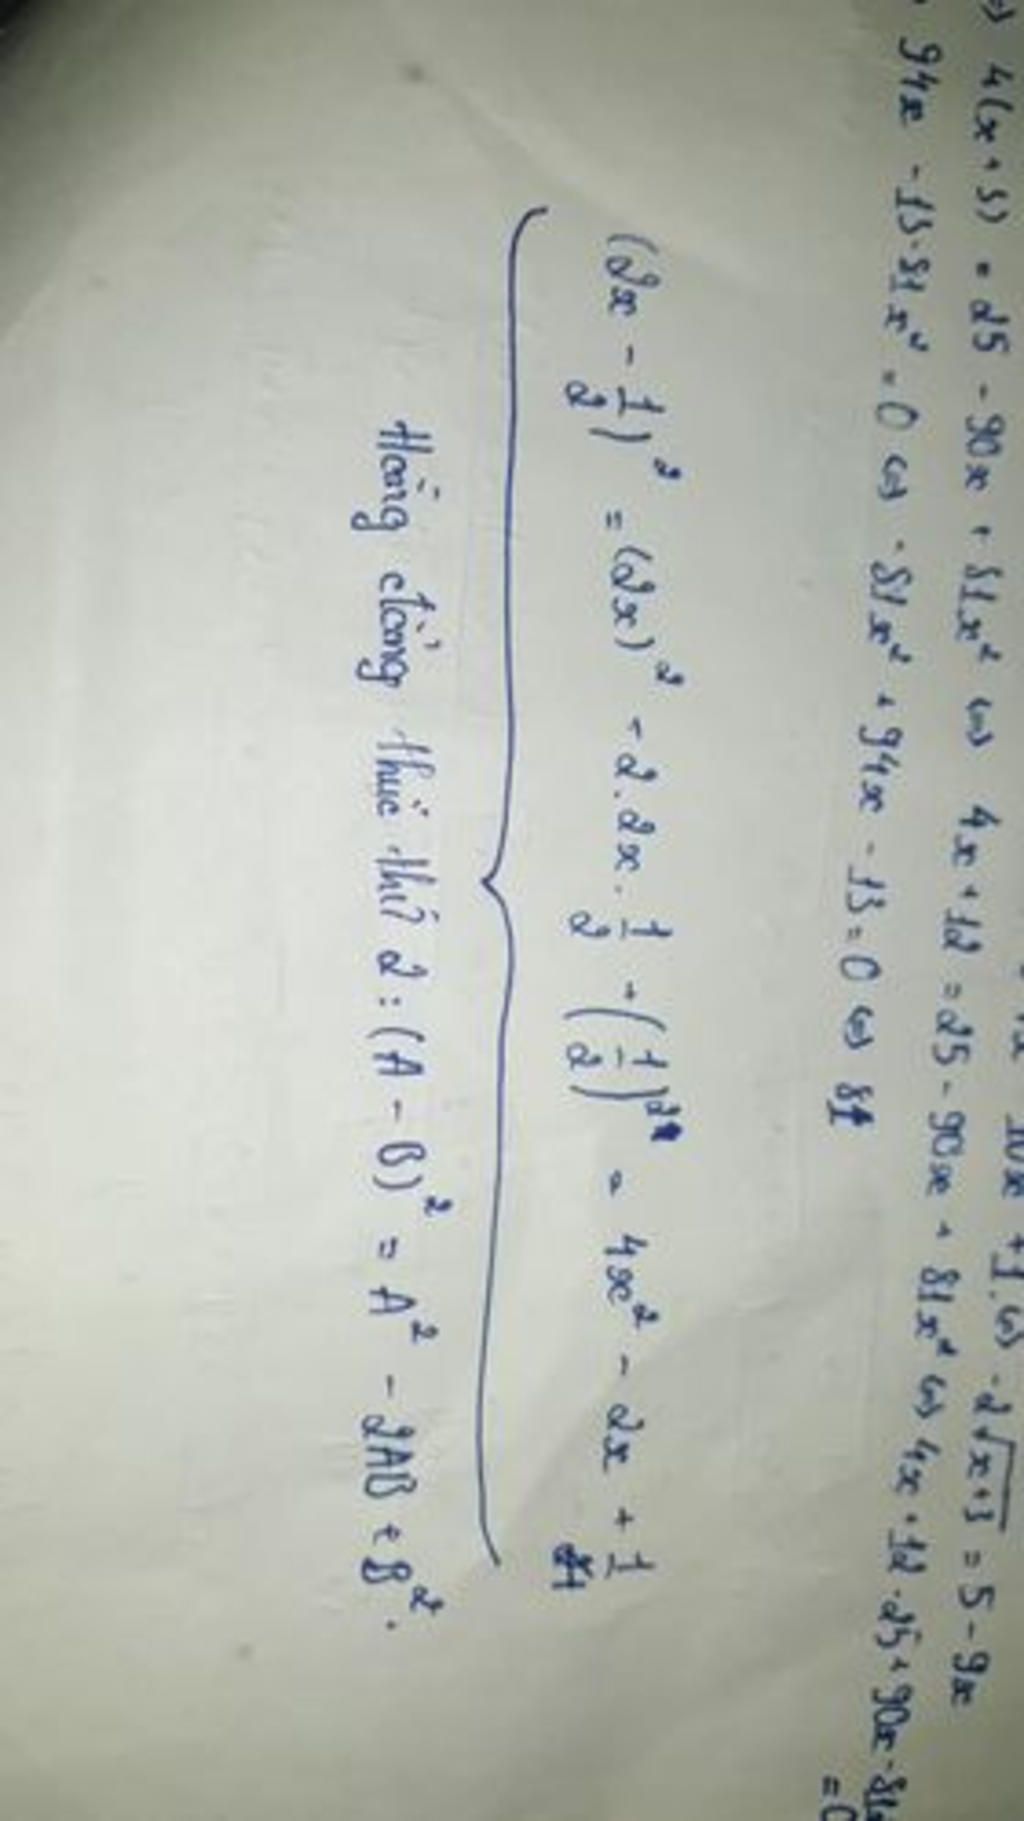 10x + 1 ⇔ -2√x+3 = 5 - 9x
⇔ 4(x+3) = 25 - 90x + 81x² ⇔ 4x + 12 = 25 - 90x + 81x² ⇔ 4x + 12 - 25 + 90x - 81x² = 0
94x - 13 - 81x² = 0 ⇔ -81x² + 94x - 13 = 0 ⇔ 81
(2x - 1/2)² = (2x)² - 2.2x.1/2 + (1/2)² = 4x² - 2x + 1/4
Hằng đẳng thức thứ 2 : (A - B)² = A² - 2AB + B².